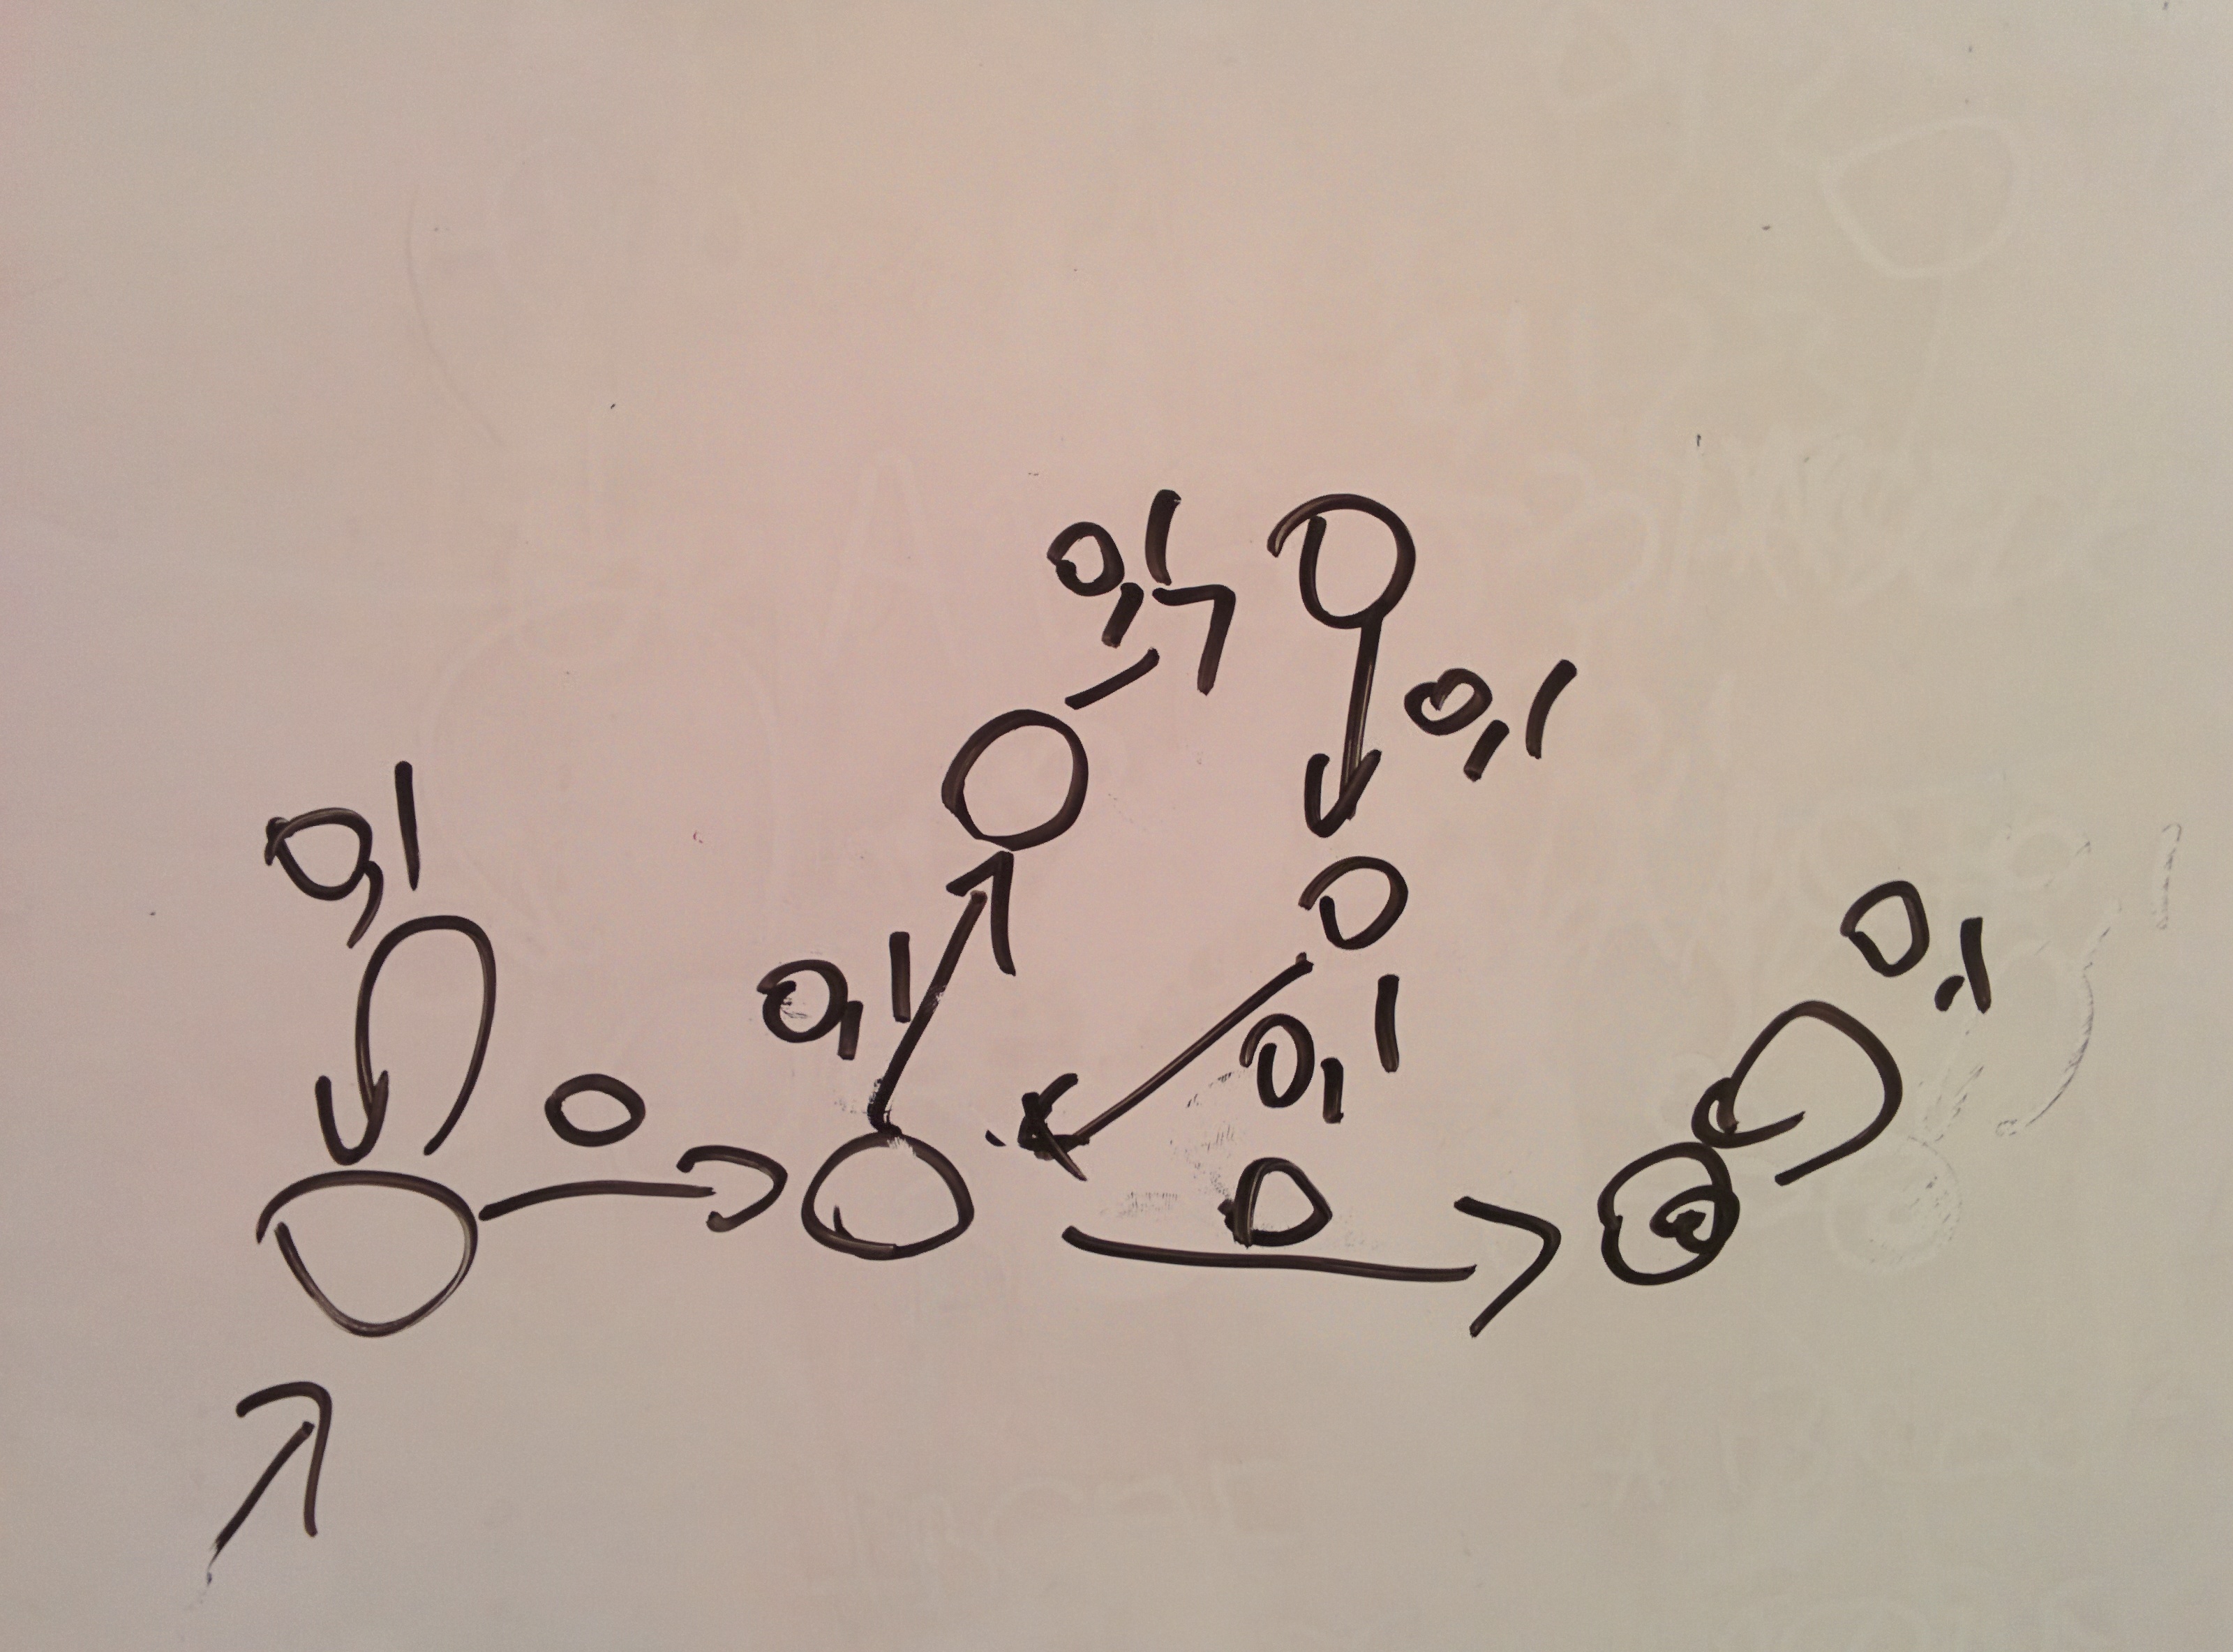 0,1
0,1
0,1
0,1
0
0,1
0,1
0